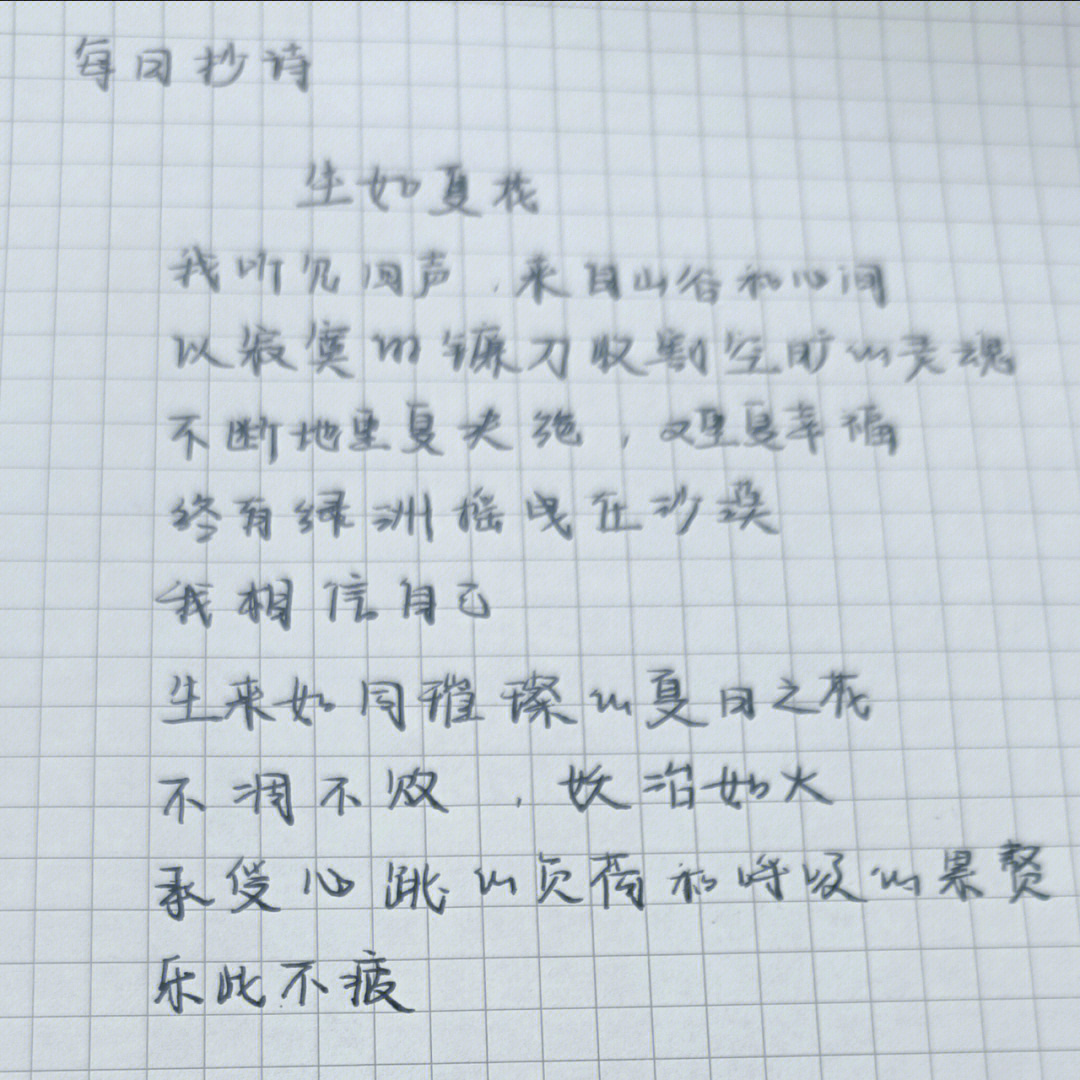 每日抄诗
生如夏花
我听见回声，来自山谷和心间
以寂寞的镰刀收割空旷的灵魂
不断地重复决绝，又重复幸福
终有绿洲摇曳在沙漠
我相信自己
生来如同璀璨的夏日之花
不凋不败，妖冶如火
承受心跳的负荷和呼吸的累赘
乐此不疲